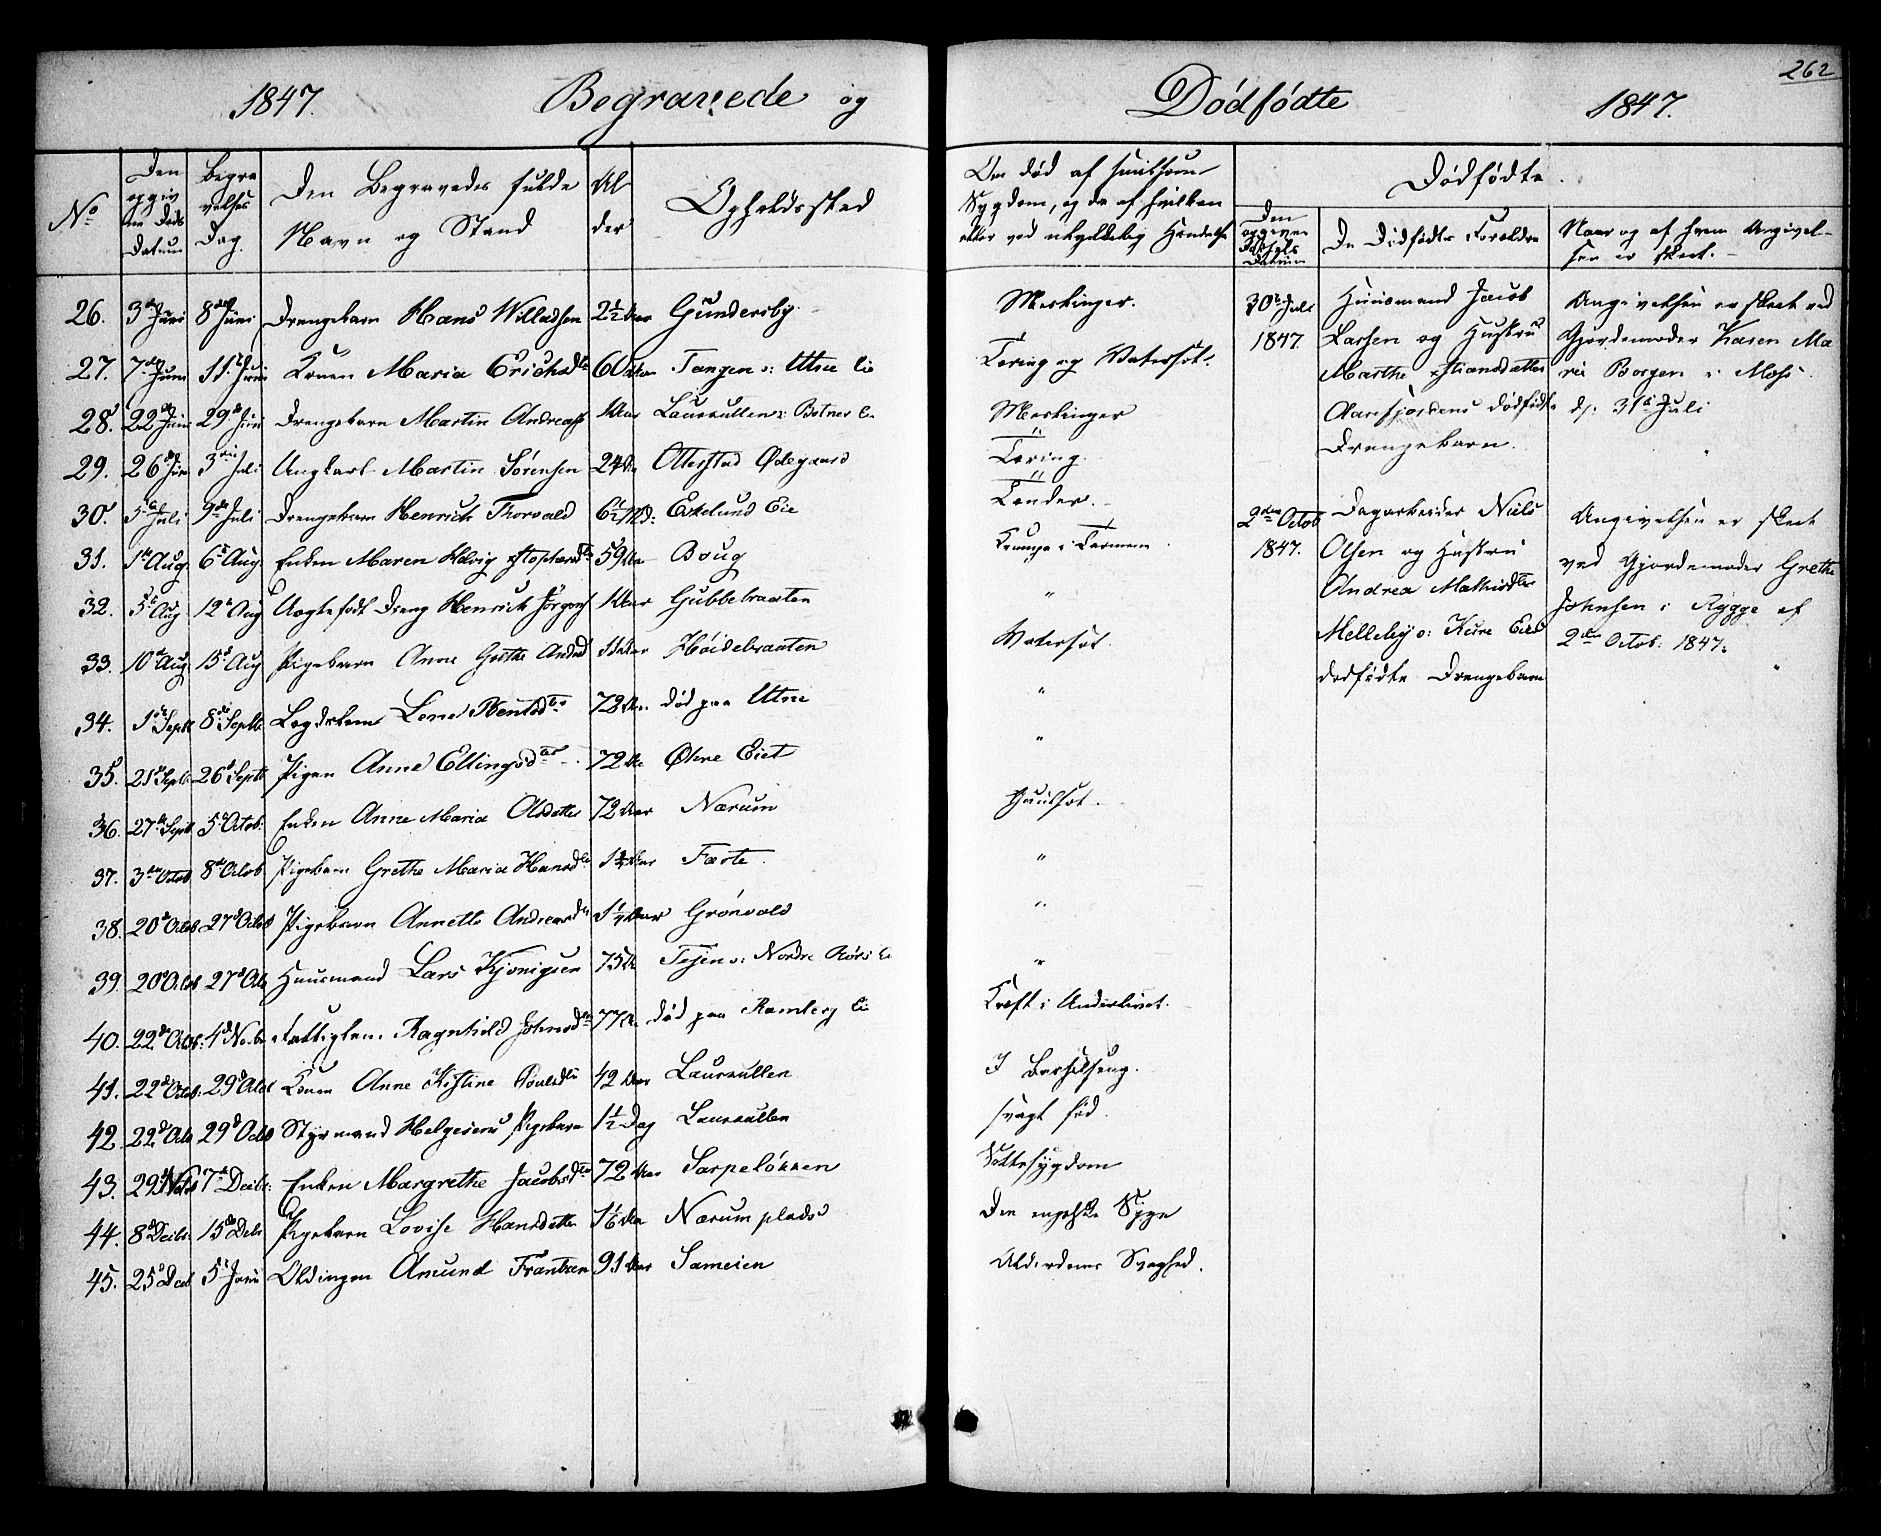 262
1847. Begravede og Dødfødte 1847.
No
Den opgivne Døds Datum
Begravelses Dag.
Den Begravedes fulde Navn og Stand
Alder
Opholdssted
Om død af smitsom Sygdom, og da af hvilken eller ved ulykkelig Hændelse
Dødfødte.
Den opgivne Fødsels Datum
De Dødfødtes Forældre
Naar og af hvem Angivelsen er skeet.
26. 3die Juni 8de Juni Drengebarn Hans Willadsen 2½ Aar Gundersby. Meslinger.
27. 7de Juni 11te Juni Konen Maria Erichsdtr 60 Aar Tangen u: Utne Eie Tæring og Vatersot.
28. 22d Juni 29d Juni Drengebarn Martin Andreass 1 Aar Laurkullen u: Botner E. Meslinger
29. 26de Juni 3die Juli Ungkarl Martin Sørensen 24 Aar Otterstad Ødegaard Tæring.
30. 5te Juli 9de Juli Drengebarn Henrich Thorvald 6½ Md: Eskelund Eie Tænder.
31. 1te Aug. 6te Aug. Enken Maren Helvig Xstophersdtr 59 Aar Boug Krampe i Tarmene.
32. 5te Aug 12te Aug Aegtefødt Dreng Henrich Jørgens 1 Aar Gubbebraaten "
33. 10de Aug 15de Aug Pigebarn Anne Grethe Andsd Høidebraaten Vatersot.
34. 1de Septb 8de Septb Lægdslem Lene Bentsdtr 78 Aar død paa Utne "
35. 21d Septb. 26d Septb Pigen Anne Ellingsdtr 72 Aar Østre Eiet "
36. 27de Septb 5te Octob: Enken Anne Maria Olsdatter 72 Aar Nærum Guulsot.
37. 3die Octob 8de Octob Pigebarn Grethe Maria Hansdtr Aar Førte. "
38. 20de Octob 27d Octob Pigebarn Annette Andreasdtr Aar Grønvold "
39. 20d Octob 27d Octb Huusmand Lars Kjønigsen 75 Aar Tejen u: Nordre Rørs E. "
40. 22de Octob: 1d Novbr Fattiglem. Ragnhild Johnsdtr 77 Aar død paa Ramberg Eie Kræft i Underlivet.
41. 22d Octob: 29d Octob Konen Anne Kistine Poulsdtr 42 Aar Laurkullen I Barselseng.
42. 22d Octb 29d Octb Styrmand Helgesens Pigebarn 1½ Dag Laurkullen svagt fød.
43. 29d Novb 7de Decbr. Enken Margrethe Jacobsdtr 72 Aar Sarpeløkken Sottesygdom
44. 8d Decbr: 15de Decbr Pigebarn Lovise Hansdatter 1⅙ Aar Nærum plads Den engelske Syge
45. 25d Decb 5te Janu Oldingen Amund Frantzen 91 Aar Sameien Alderdoms Svaghed.
30te Juli 1847.
Huusmand Jacob
Larsen og Hustru
Marthe Xstiansdatter
Aarefjordens dødfødte
Drengebarn.
Angivelsen er skeet ved
Gjordemoder Karen Ma
rie Borgen i Moss
d: 31te Juli
2den Octob 1847.
Dagarbeider Niels
Olsen og Hustru
Andrea Mathisdtr
Melleby u: Kure Eies
dødfødte Drengebarn
Angivelsen er skeet
ved Gjordemoder Grethe
Johnsen i Rygge af
2den Octob: 1847.